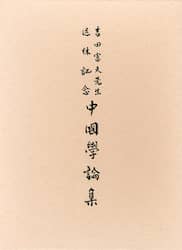 吉田富夫先生
退休記念
中國學論集